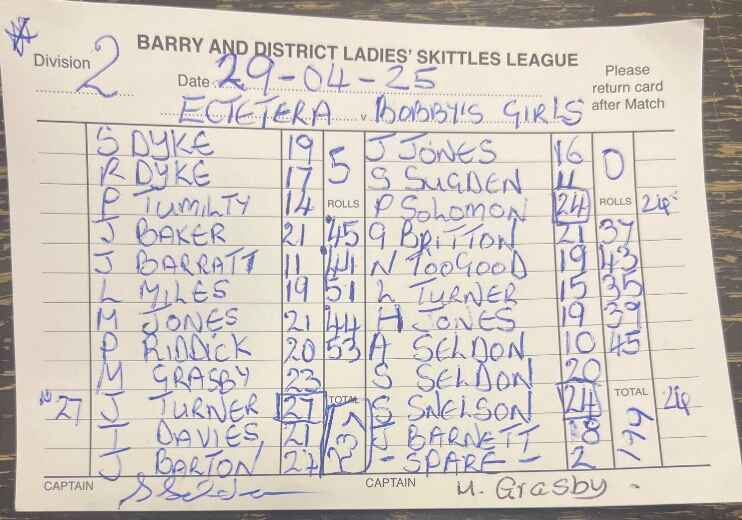 BARRY AND DISTRICT LADIES' SKITTLES LEAGUE
Division 2
Date 29-04-25
Please return card after Match
ECTETERA v BOBBY'S GIRLS
S DYKE 19 5 J JONES 16 0
R DYKE 17 S SUGDEN 11
P TUMILTY 14 ROLLS P SOLOMON 24 ROLLS 24
J BAKER 21 45 G BRITTON 21 37
J BARRATT 11 44 N TOOGOOD 19 43
L MILES 19 51 L TURNER 15 35
M JONES 21 44 H JONES 19 39
P RIDDICK 20 53 A SELDON 10 45
M GRASBY 23 S SELDON 20
27 J TURNER 27 TOTAL S SNELSON 24 TOTAL 24
I DAVIES 21 237 J BARNETT 18 199
J BARTON 24 - SPARE - 2
CAPTAIN CAPTAIN M. Grasby